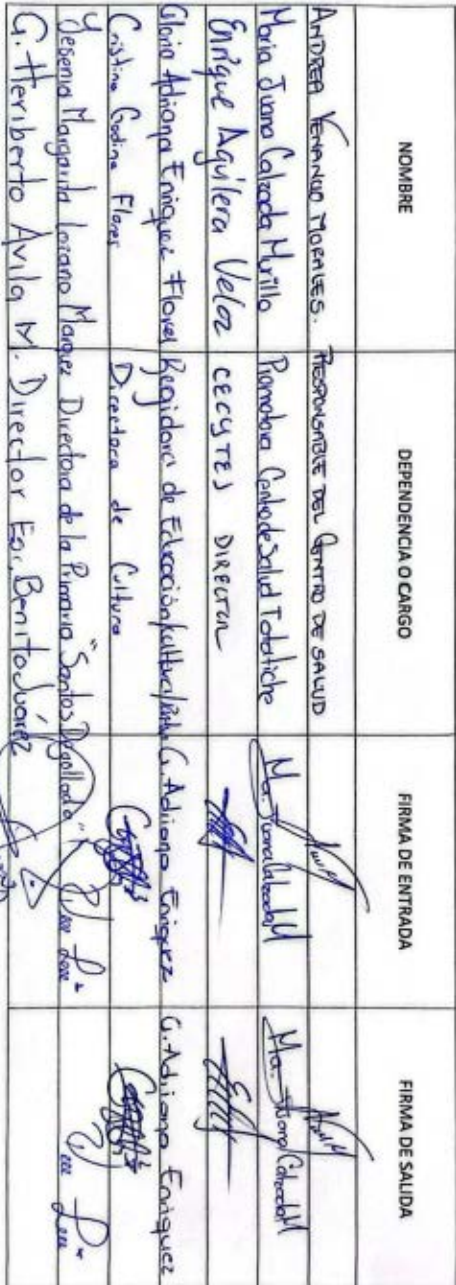 NOMBRE DEPENDENCIA O CARGO FIRMA DE ENTRADA FIRMA DE SALIDA
ANDREA VENANCIO MORALES. RESPONSABLE DEL CENTRO DE SALUD
Maria Juana Calzada Murillo Promotora Centro de Salud Totatiche Ma. Juana Calzada M Ma. Juana Calzada M
Enrique Aguilera Veloz CECYTEJ DIRECTOR
Gloria Adriana Enriquez Flores Regidora de Educación, Cultura G. Adriana Enriquez G. Adriana Enriquez
Cristina Godina Flores Directora de Cultura
Yesenia Margarita Lozano Marquez Directora de la Primaria "Santos Degollado"
G. Heriberto Avila M. Director Esc. Benito Juárez